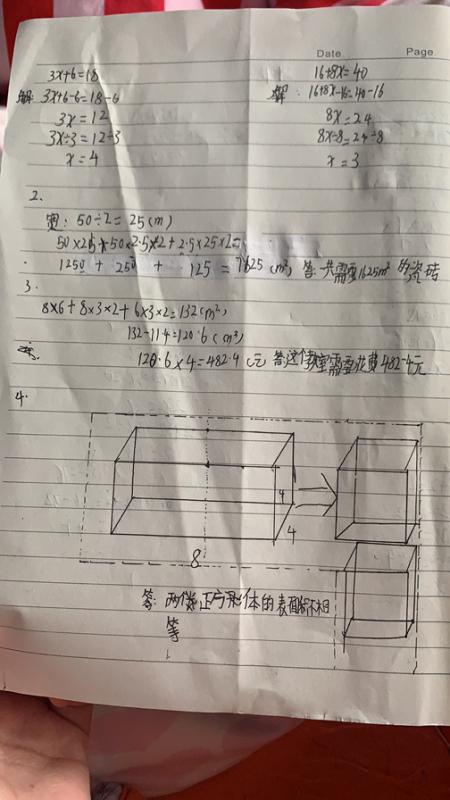 Date Page
3x+6=18
解: 3x+6-6=18-6
3x=12
3x÷3=12÷3
x=4
16+8x=40
解: 16+8x-16=40-16
8x=24
8x÷8=24÷8
x=3
2.
宽: 50÷2=25(m)
50×25+50×2.5×2+2.5×25×2=
1250 + 250 + 125 = 1625(m²) 答:一共需要1625m²的瓷砖
3.
8×6+8×3×2+6×3×2=132(m²)
132-11.4=120.6(m²)
120.6×4=482.4(元) 答:这个教室需要花费482.4元
4.
4
4
8
答: 两个正方形体的表面积不相
等